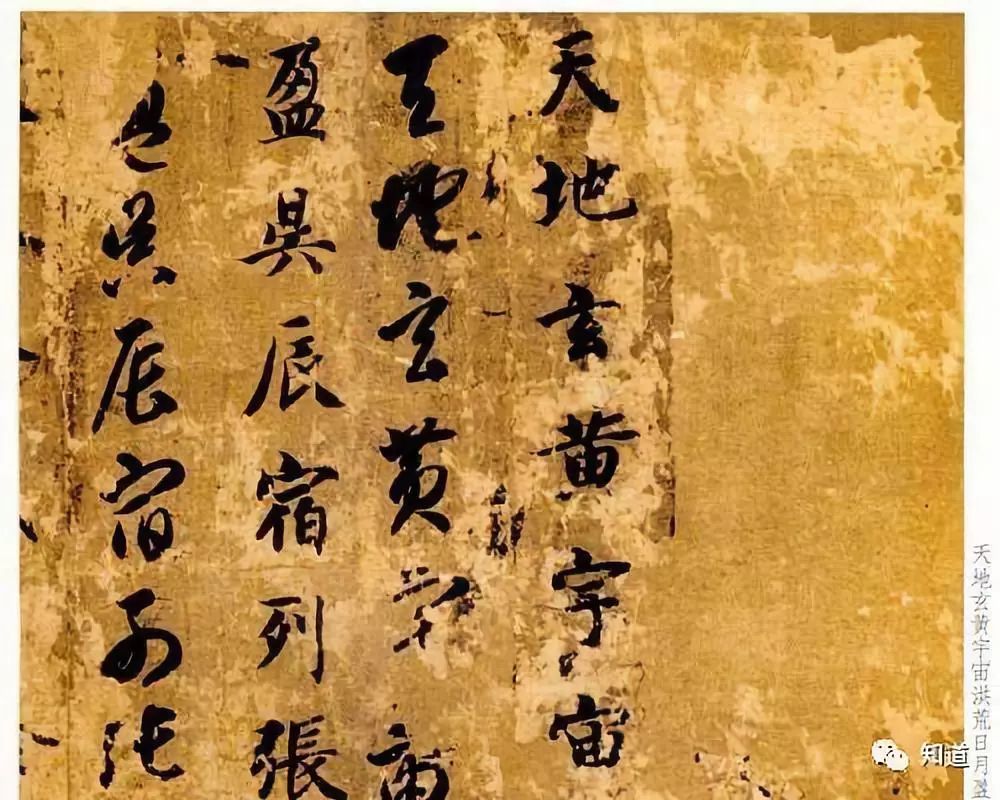 天地玄黄宇宙
天地玄黄宇宙
盈昃辰宿列張
盈昃辰宿列張
天地玄黄宇宙洪荒日月盈
知道